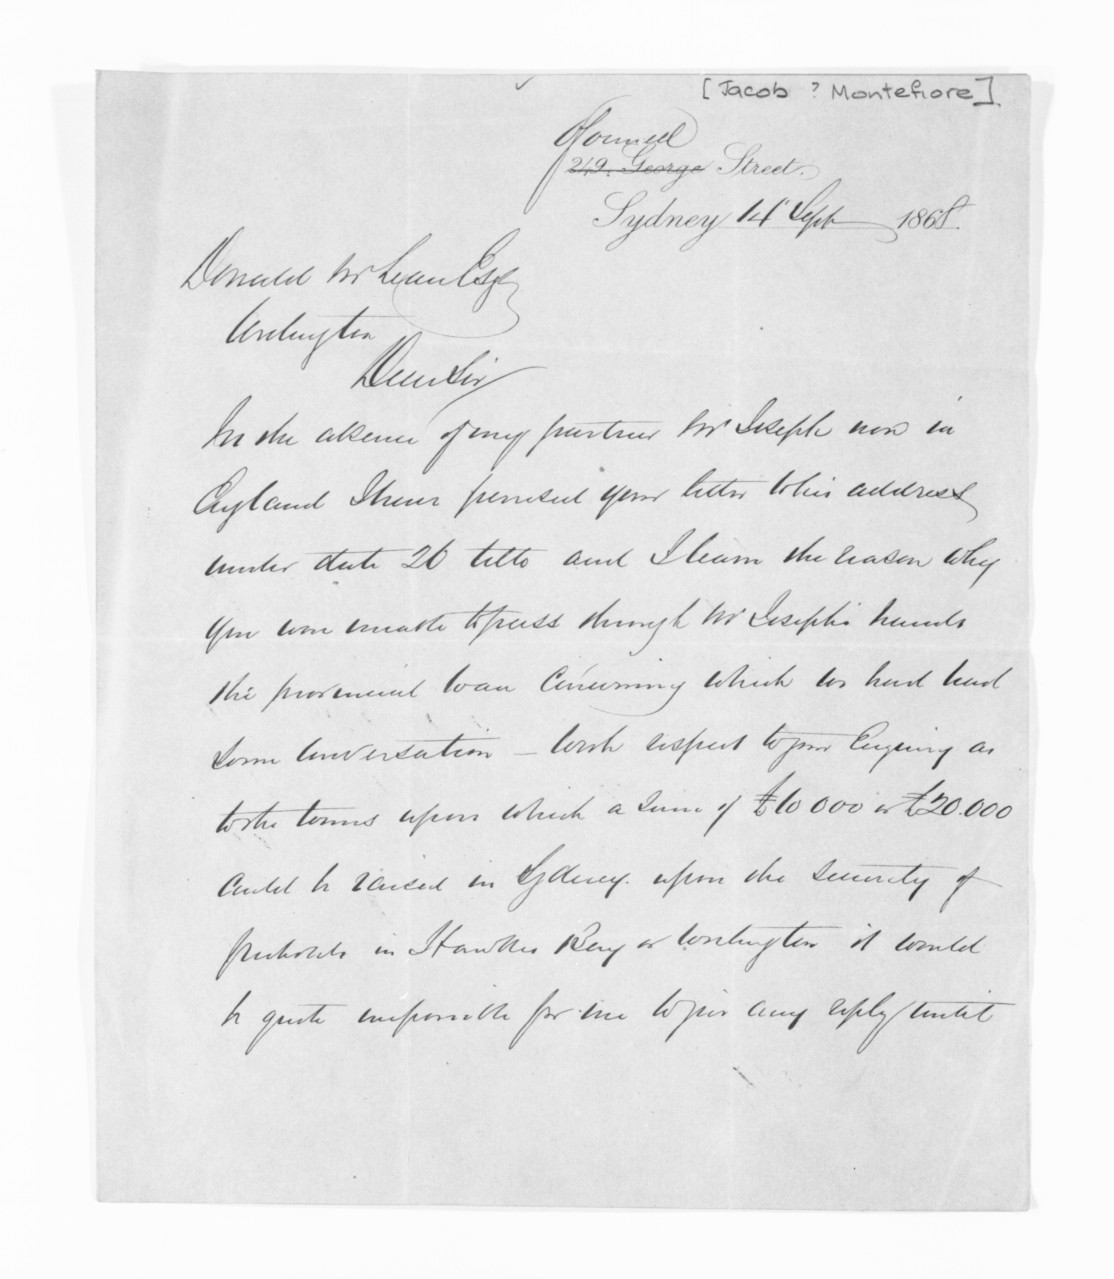 [Jacob ? Montefiore]
O'Connell
249. George Street.
Sydney 14 Sept 1868.
Donald McLean Esq
Wellington
Dear Sir
In the absence of my partner Mr Joseph now in
England I have perused your letter to his address
under date 26 Ulto and I learn the reason why
you were unable to pass through Mr Joseph's hands
the provincial loan concerning which we had had
some conversation — With respect to your Enquiry as
to the terms upon which a Sum of £10 000 or £20.000
could be raised in Sydney upon the security of
freeholds in Hawkes Bay or Wellington it would
be quite impossible for me to give any reply until